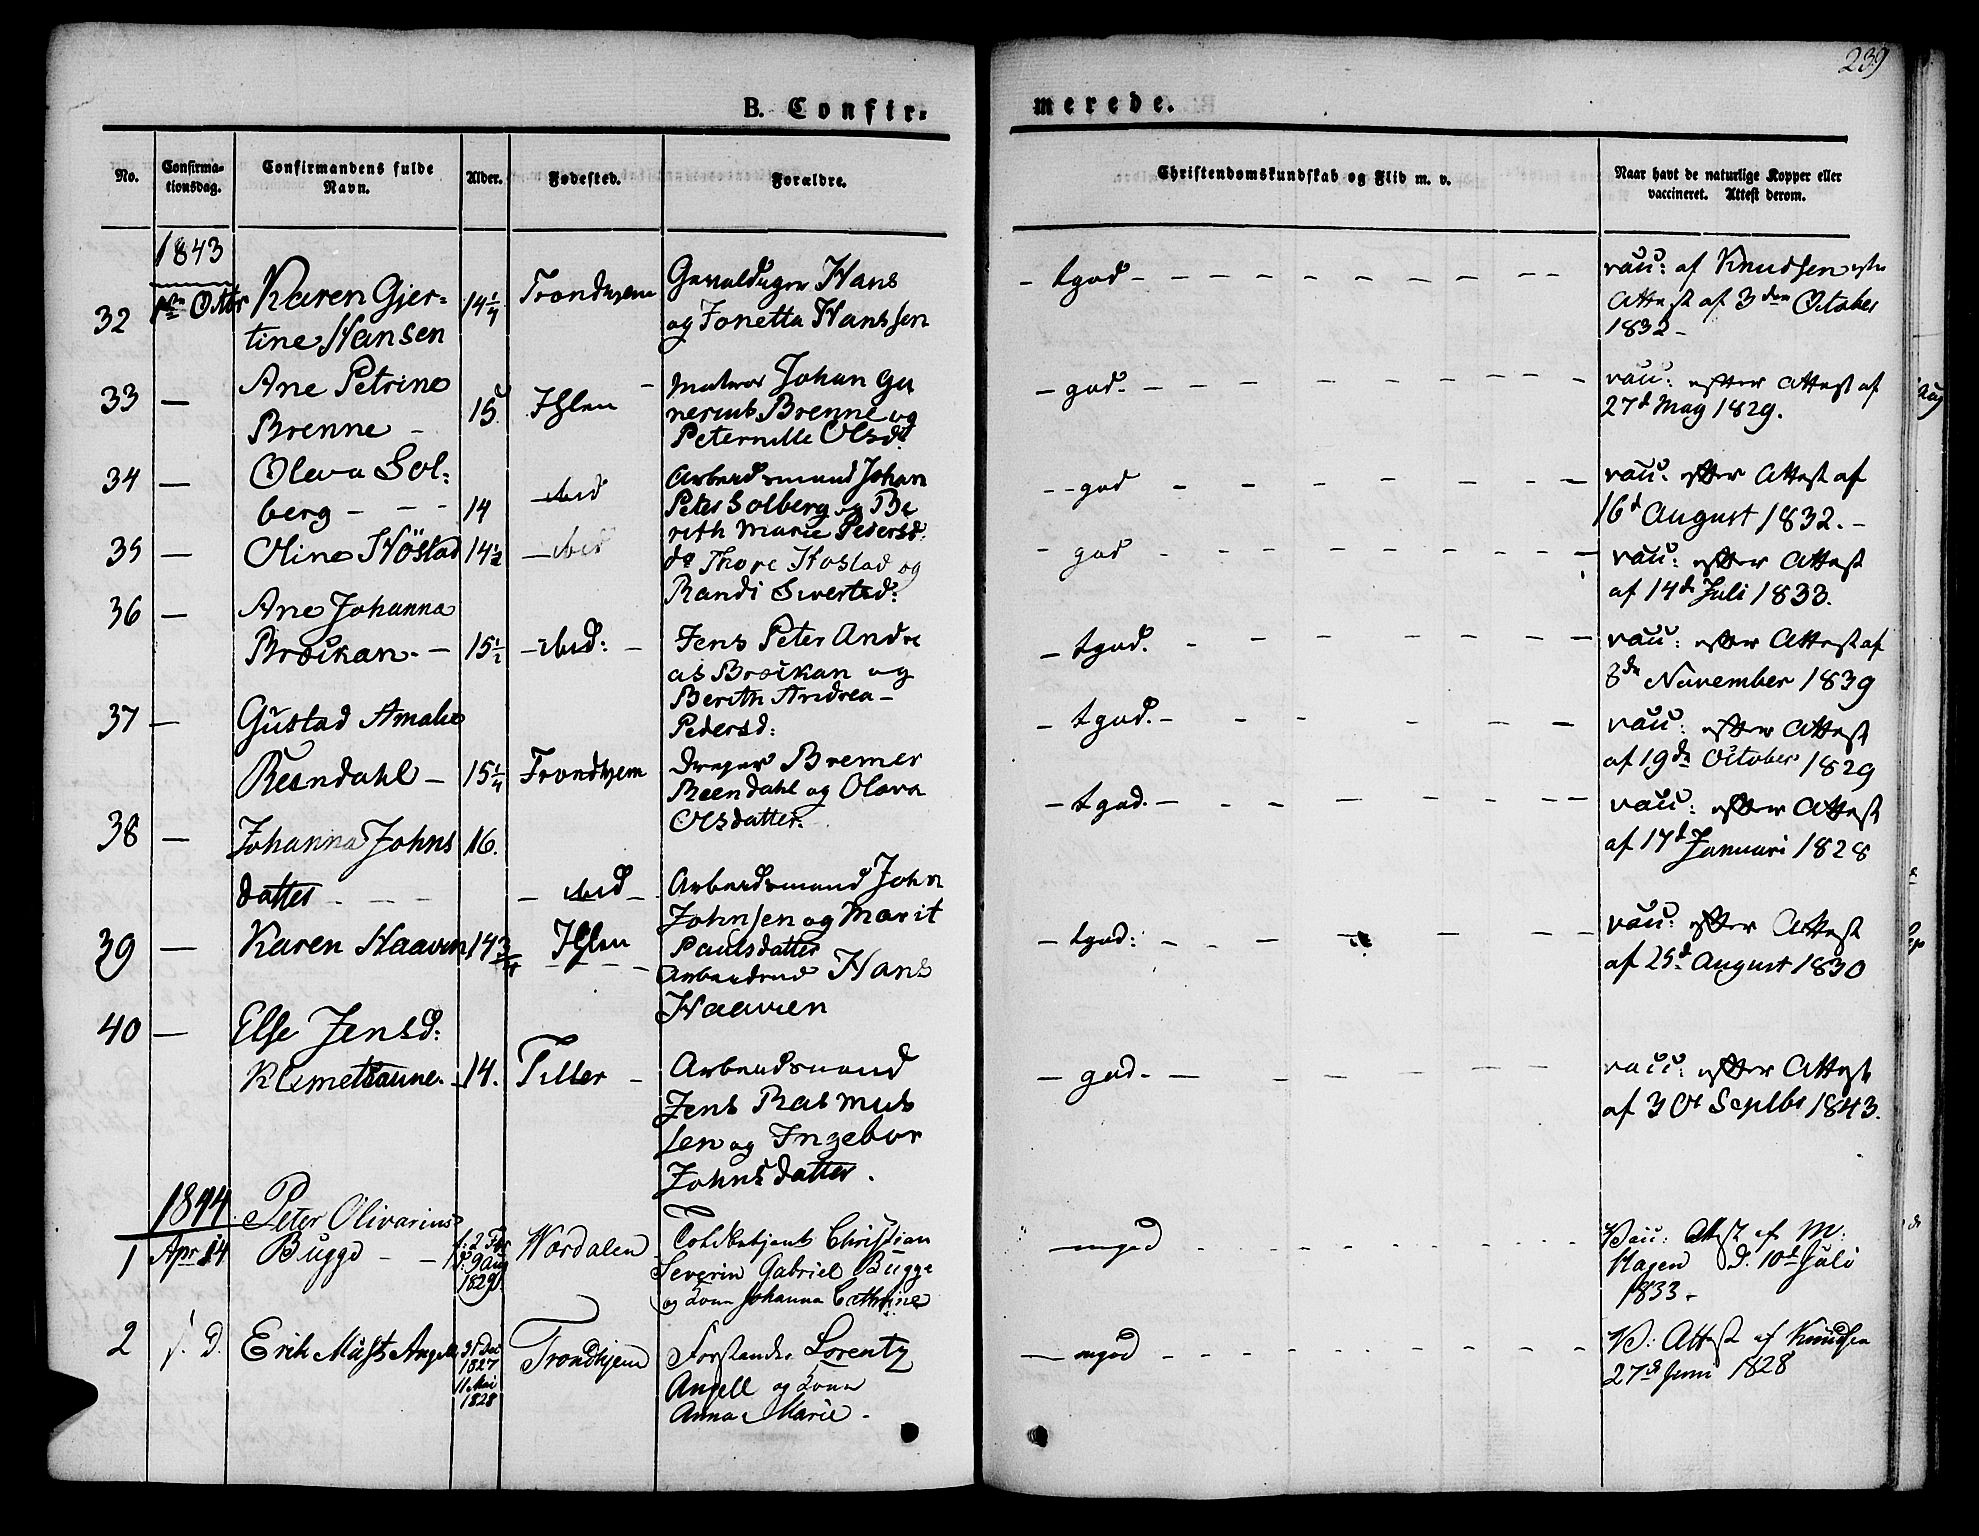 239
B. Confir-
merede.
No.
Confirma-
tionsdag.
Confirmandens fulde
Navn.
Alder.
Fødested.
Forældre.
Christendomskundskab og Flid m. v.
Naar havt de naturlige Kopper eller
vaccineret. Attest derom.
1843
32 1ste Octbr Karen Gjer-
tine Hansen
14¼ Trondhjem
Hans
og Jonetta Hanssen
- tgod - - -
vacc: af Knudsen
Attest af 3den October
1832 -
33 — Ane Petrine
Brenne -
15 Ihlen
Matros Johan Gu
nerius Brenne og
Peternille Olsdt
- god. - - -
vacc: efter Attest af
27d May 1829.
34 — Oleva Sol-
berg - - -
14 ibid
Arbeidsmand Johan
Peter Solberg og Be
rith Marie Pedersd.
- - god - - -
vacc: efter Attest af
16d August 1832. -
35 — Oline Höstad
14½ — ibid
do Thore Höstad og
Randi Sivertsd:
- god - - -
vacc: efter Attest
af 14d Juli 1833.
36 — Ane Johanna
Bröckan. -
15½ - ibid: -
Jens Peter Andre
as Bröckan og
Berith Andrea -
Pedersd:
- tgod. - - -
vacc: efter Attest af
8de November 1839
37 — Gustad Amalie
Reendahl -
15¼ Trondhjem
Drager Bremer
Reendahl og Olava
Olsdatter.
- tgod. - - -
vacc: efter Attest
af 19de October 1829
38 — Johanna Johns
datter - - -
16. - ibid -
Arbeidsmand John
Johnsen og Marit
Paulsdatter
- tgod. - - -
vacc: efter Attest
af 17d Januari 1828
39 — Karen Haaven
14¾ Ihlen
Arbeidsmd Hans
Haaven
- tgod: - - -
vacc: efter Attest
af 25d August 1830
40 — Else Jensd:
Klemetsaune. -
14. Tiller -
Arbeidsmand
Jens Rasmus
sen og Ingebor
Johns datter.
- god. - - -
vacc: efter Attest
af 30t Septbr 1843.
1844
1 Apr 14 Peter Olivarius
Bugge - -
f. 2 Fbr
d: 9 Aug
1829
Værdalen
Toldbetjent Christian
Severin Gabriel Bugge
og Kone Johanna Cathrine
— mgod - - -
Vacc: Attest af M:
Hagen d. 10d Juli
1833 -
2 s. D. Erik Must Angell
31 Dec
1827
11 Mai
1828
Trondhjem
Forstander Lorentz
Angell og Kone
Anna Marie -
— mgod - - -
V: Attest af Knudsen
27d Juni 1828